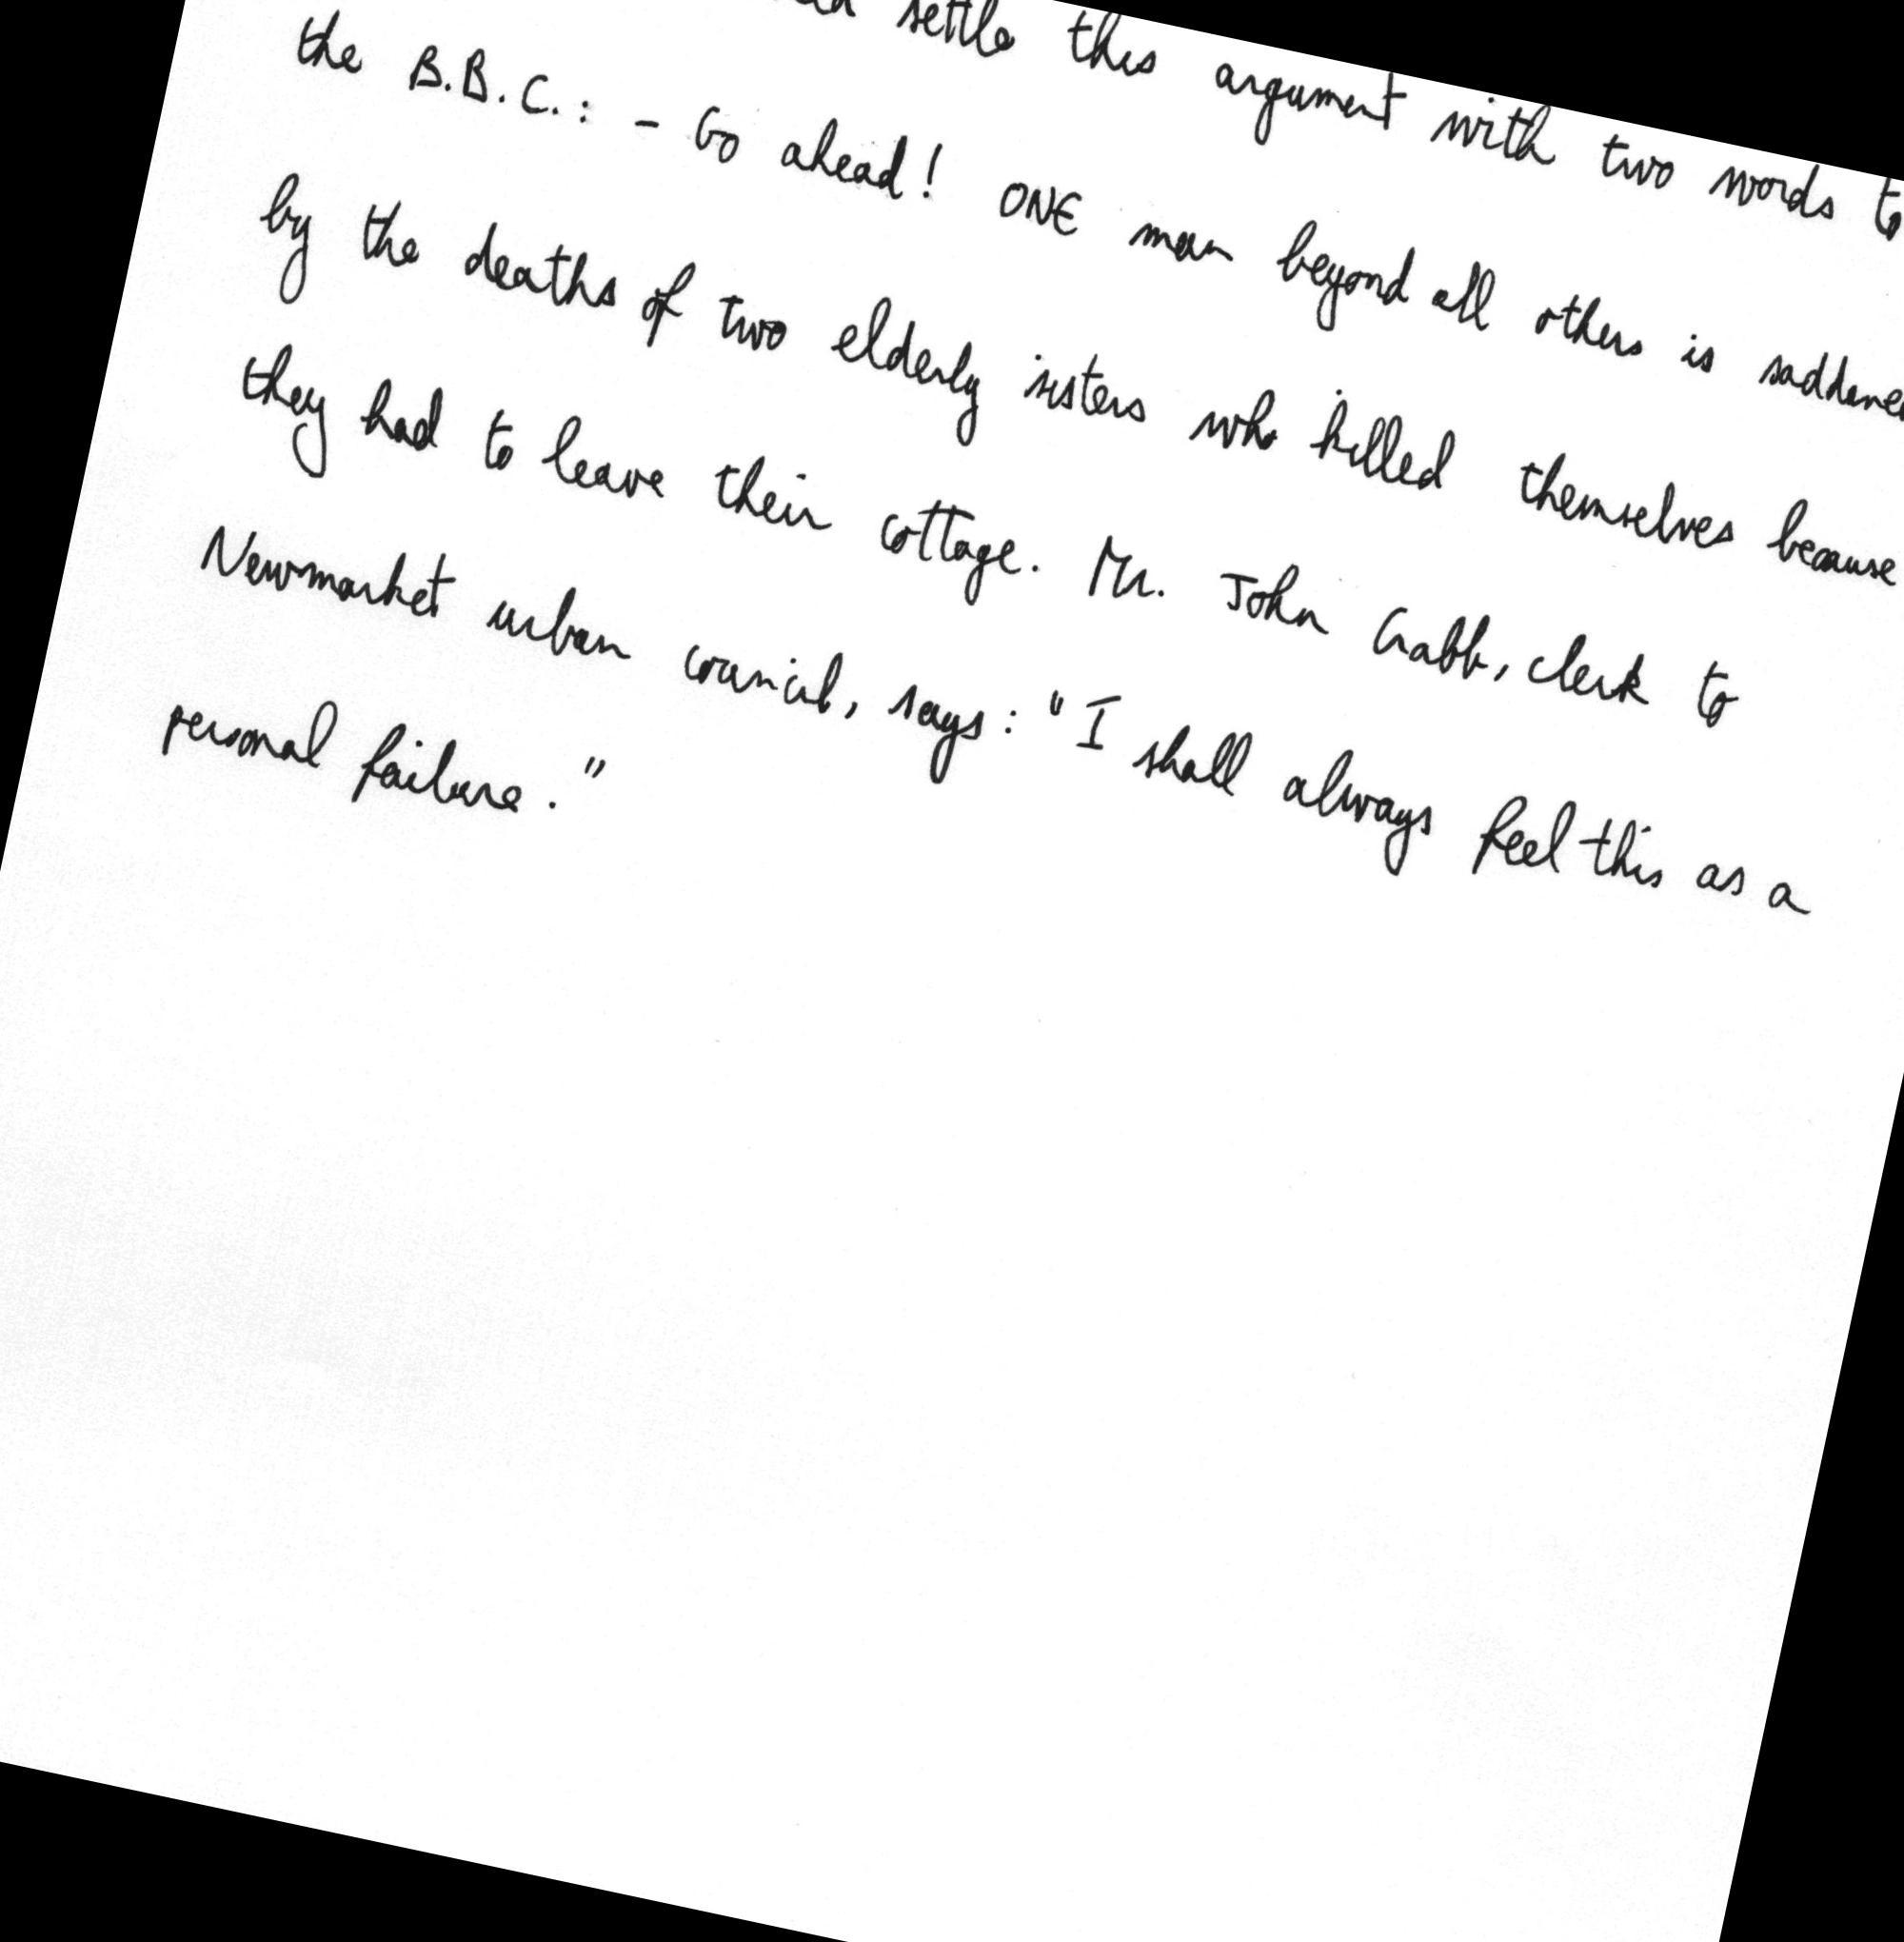 settle this argument with two words to
the B.B.C.: - Go ahead! ONE man beyond all others is saddened
by the deaths of two elderly sisters who killed themselves because
they had to leave their cottage. Mr. John Crabb, clerk to
Newmarket urban council, says: "I shall always feel this as a
personal failure."